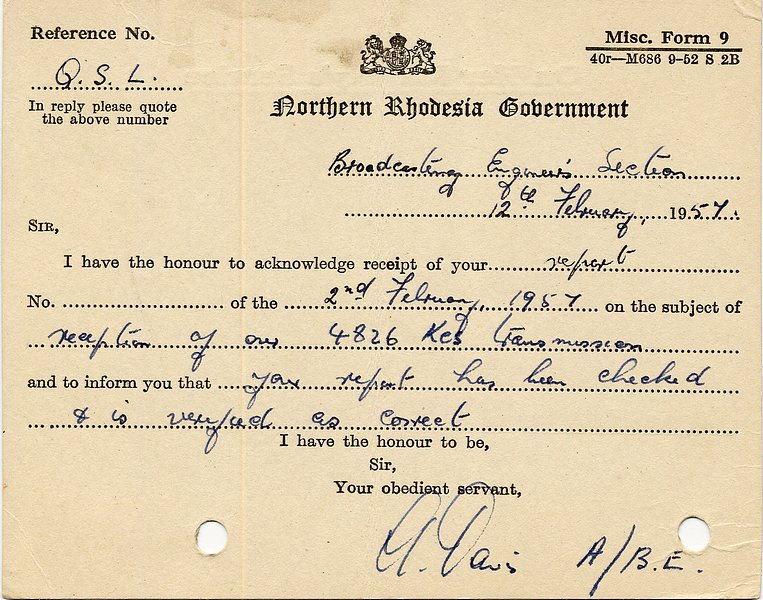 Reference No.
Misc. Form 9
40r—M686 9-52 S 2B
Q. S. L.
In reply please quote
the above number
Northern Rhodesia Government
Broadcasting Engineers Section
12th February, 1957.
SIR,
I have the honour to acknowledge receipt of your report
No. of the 2nd February, 1957 on the subject of
reception of our 4826 Kcs transmission
and to inform you that your report has been checked
& is verified as correct
I have the honour to be,
Sir,
Your obedient servant,
Davis A/B.E.